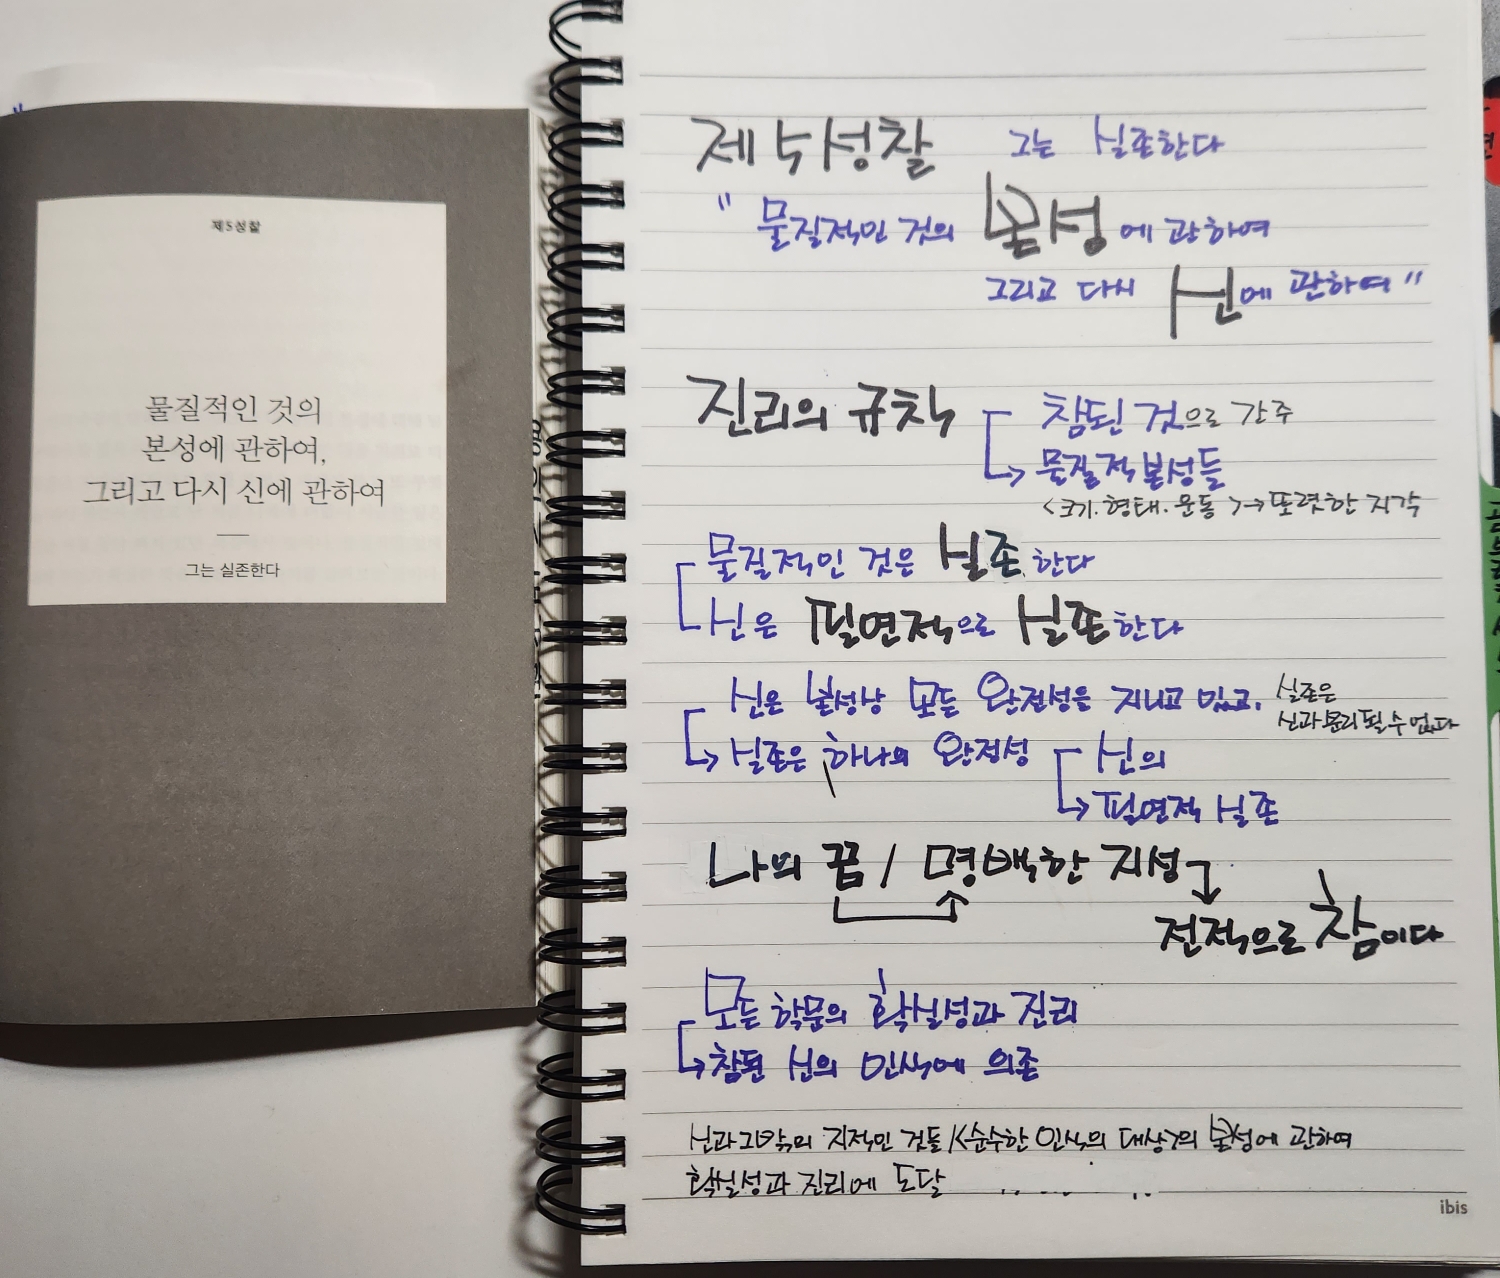 제5성찰
물질적인 것의
본성에 관하여,
그리고 다시 신에 관하여
그는 실존한다
제5성찰 그는 실존한다
"물질적인 것의 본성에 관하여
그리고 다시 신에 관하여"
진리의 규칙 참된 것으로 간주
→ 물질적 본성들
<크기.형태.운동> → 또렷한 지각
물질적인 것은 실존한다
신은 필연적으로 실존한다
신은 본성상 모든 완전성을 지니고 있고, 실존은
신과 분리될 수 없다
→ 실존은 하나의 완전성 신의
→ 필연적 실존
나의 꿈 / 명백한 지성
전적으로 참이다
모든 학문의 확실성과 진리
→ 참된 신의 인식에 의존
신과 그 밖의 지적인 것들/<순수한 인식의 대상>의 본성에 관하여
확실성과 진리에 도달
ibis